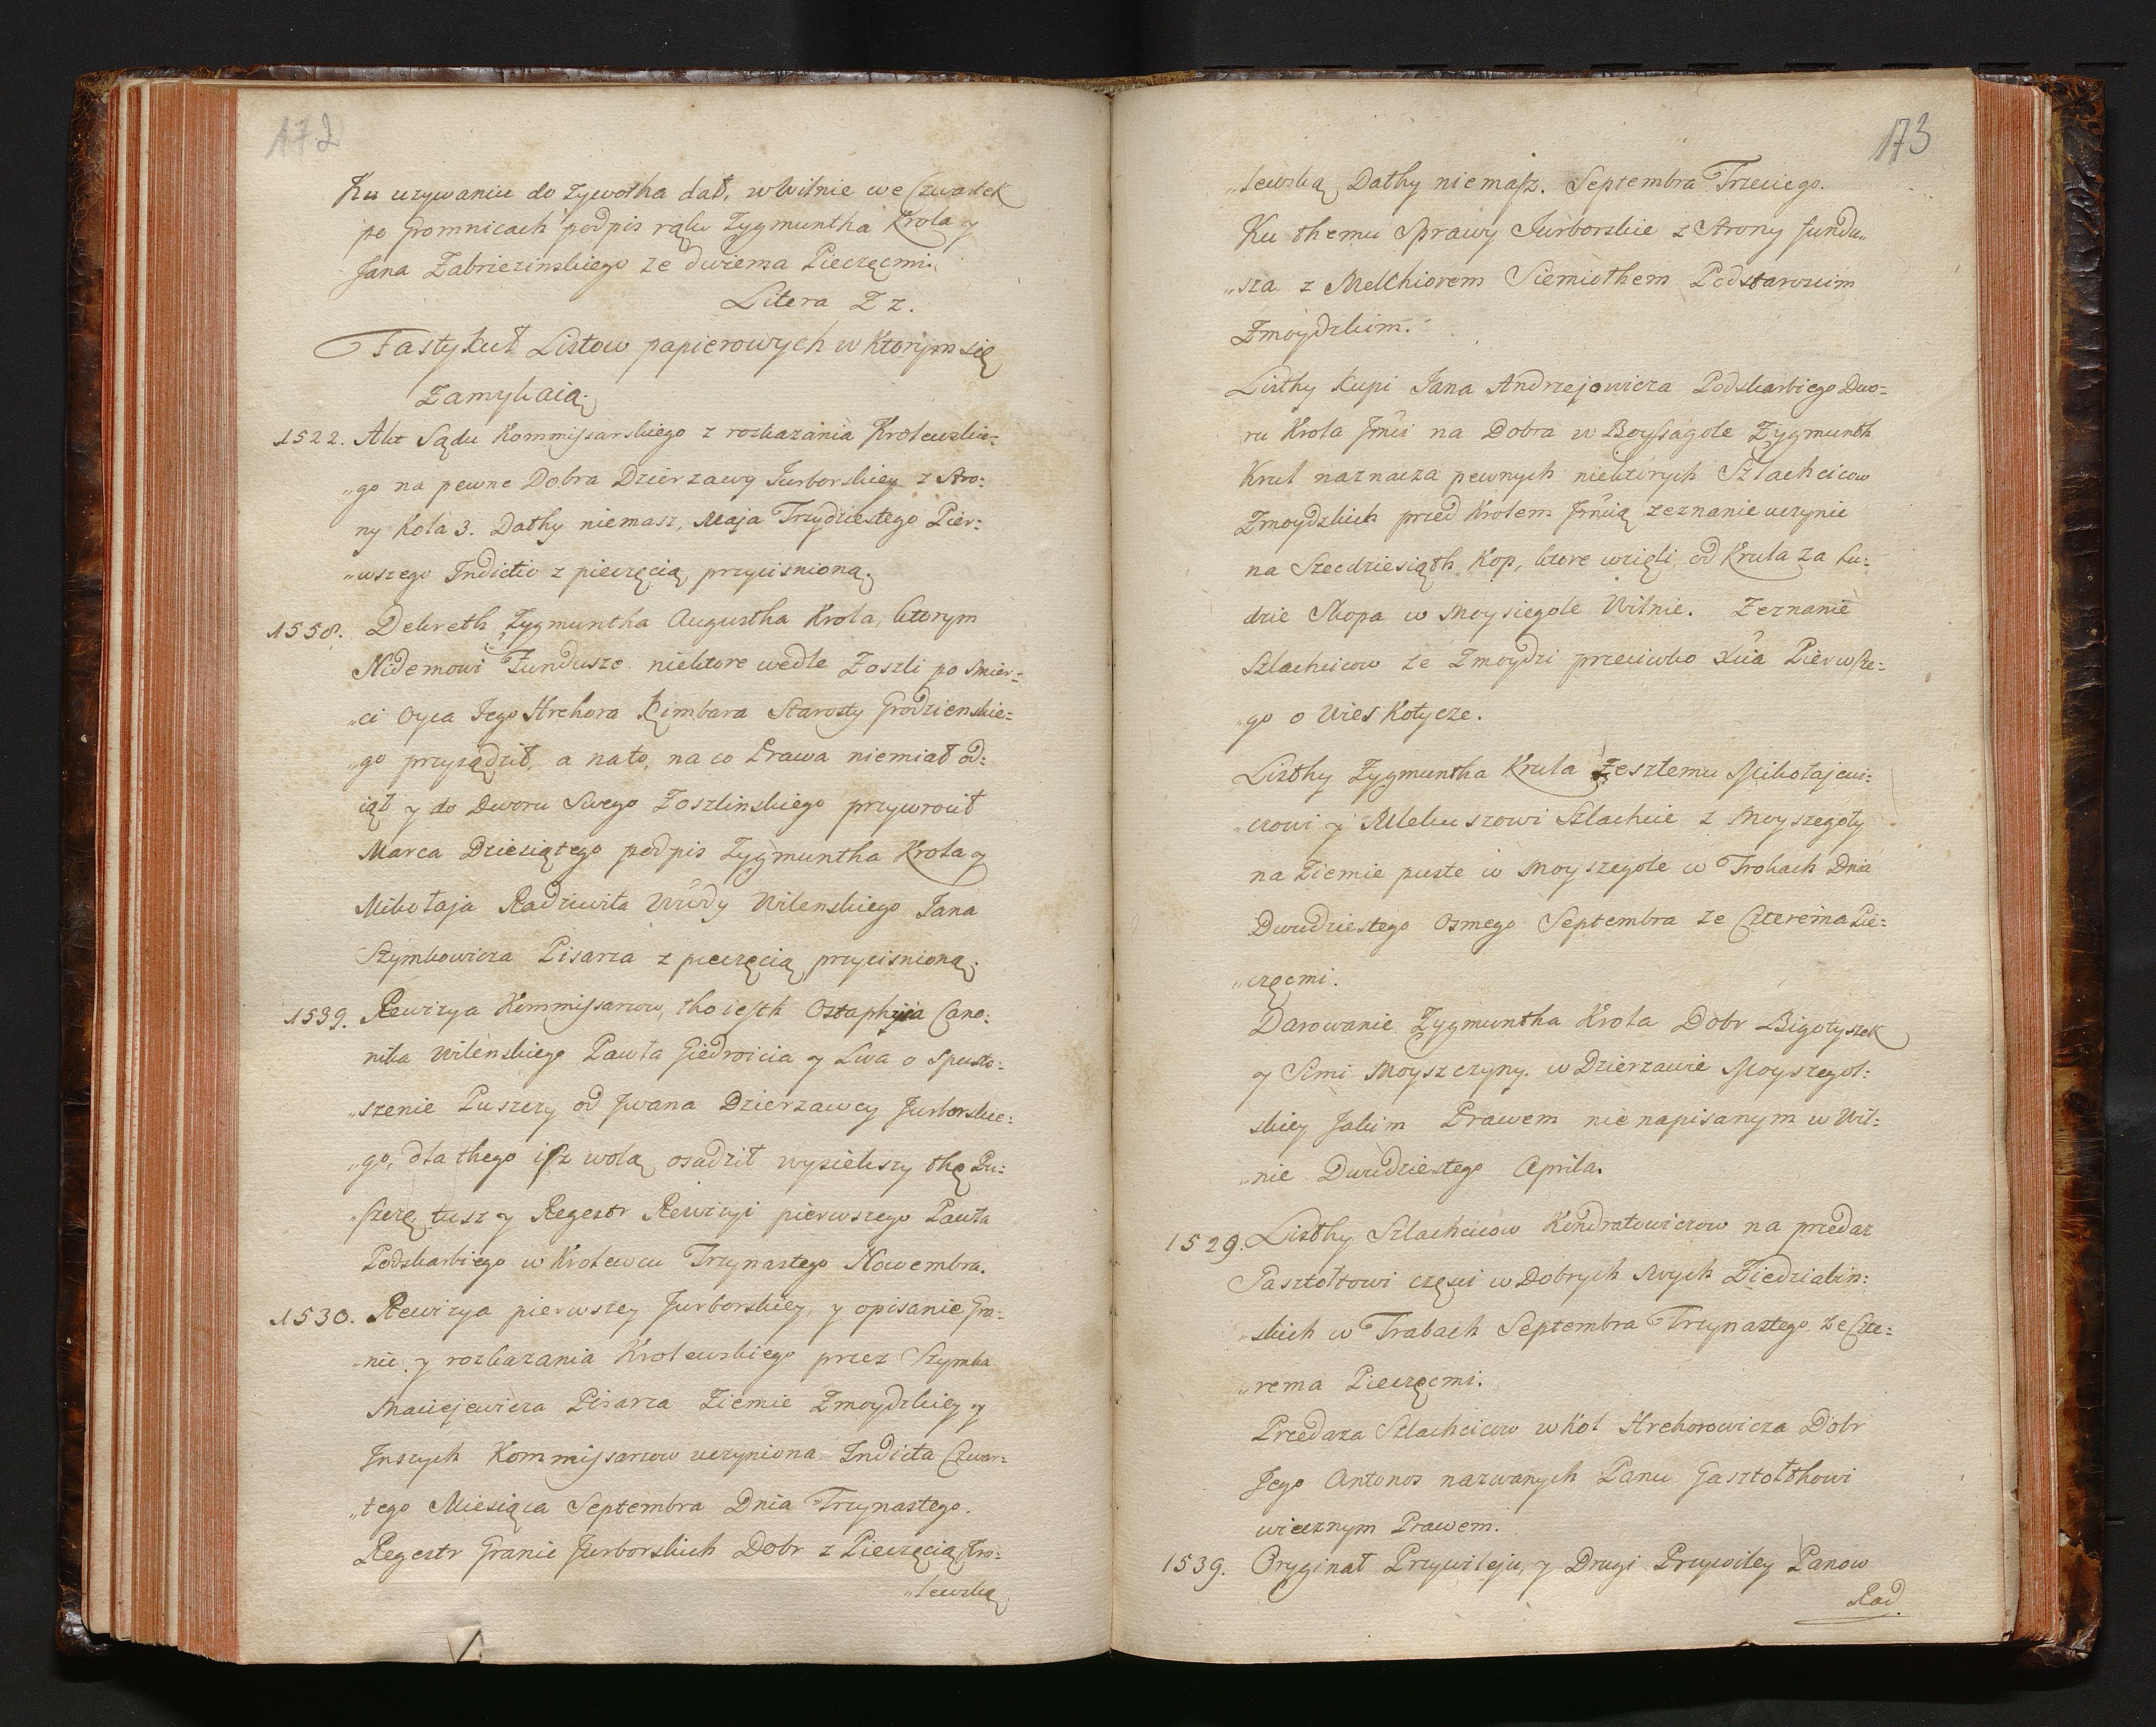 172
Ku uzywaniu do zywotha dał, w Wilnie we Czwartek
po Gromnicach podpis rąk Zygmuntha Krola y
Jana Zabriezinskiego ze dwiema Pieczęcmi.
Litera Zz.
Fastykuł Listow papierowych w ktorym się
Zamykaią.
1522. Akt Sądu Kommissarskiego z roskazania Krolewskie=
„go na pewne Dobra Dzierzawy Jurborskiey z Stro=
ny Kola 3. Dathy niemasz, Maja Trzydziestego Pier=
„wszego Indictio z pieczęcią przycisnioną.
1558. Dekreth Zygmuntha Augustha Krola, ktorym
Nidemowi Fundusze niektore wedle Zoszli po smier=
„ci Oyca Jego Hrehora Kimbara Starosty Grodzienskie=
„go przysądził, a na to, na co Prawa niemiał od=
iął y do Dworu Swego Zoszlinskiego przywrocił
Marca Dziesiątego podpis Zygmuntha Krola y
Mikołaja Radziwiła Wwdy Wilenskiego Jana
Szymkowicza Pisarza z pieczęcią przycisnioną.
1539. Rewizya Kommissarzow, tho iesth Ostaphija Cano=
nika Wilenskiego Pawła Giedroicia y Lwa o Spusto=
„szenie Puszczy od Jwana Dzierzawcy Jurborskie=
„go, dla thego isz wolą osadził wysiekszy thę Pu=
„szczę tusz y Regestr Rewizyi pierwszego Pawła
Podskarbiego w Krolewcu Trzynastego Nowembra.
1530. Rewizya pierwszey Jurborskiey, y opisanie Gra=
„nic y roskazania Krolewskiego przez Szymka
Maciejewicza Pisarza Ziemie Zmoydzkiey y
Jnszych Kommissarzow uczyniona Indicta Czwar=
„tego Miesiąca Septembra Dnia Trzynastego.
Regestr Granic Jurborskich Dobr z Pieczęcią Kro=
„lewską
173
„lewską Dathy niemasz. Septembra Trzeciego.
Ku themu Sprawy Jurborskie z Strony fundu„
„sza z Melchiorem Siemiothem Podstaroscim
Zmoydzkim.
Listhy kupi Jana Andrzejowicza Podskarbiego Dwo=
ru Krola Jmci na Dobra w Boyssagole Zygmunth
Krul naznacza pewnych niektorych Szlachcicow
Zmoydzkich przed Krolem Jmcią zeznanie uczynic
na Szecdziesiąth Kop, ktore wzięli od Krula za lu=
dzie Skopa w Moysiegole Wilnie. Zeznanie
Szlachcicow ze Zmoydzi przeciwko Xcia Pierwsze=
„go o Wies Kotycze.
Listhy Zygmuntha Krula Zesztemu Mikołajewi=
„czowi y Alekuszowi Szlachcie z Moyszegoły
na Ziemie puste w Moyszegole w Trokach Dnia
Dwudziestego Osmego Septembra ze Czterema Pie=
„częcmi.
Darowanie Zygmuntha Krola Dobr Bigotyszek
y Simi Moyszczyny. w Dzierzawie Moyszegol=
skiey Jakim Prawem nie napisanym w Wil=
„nie Dwudziestego Aprila.
1529. Listhy Szlachcicow Kondratowiczow na przedaz
Pasztołtowi częsci w Dobrych swych Ziedziabin=
„skich w Trabach Septembra Trzynastego ze Czte=
„rema Pieczęcmi.
Przedaza Szlachcicow w Kol Hrehorowicza Dobr
Jego Antonos nazwanych Panu Gasztołthowi
wiecznym Prawem.
1539. Oryginał Przywileju, y Drugi Przywiley Panow
Rad.